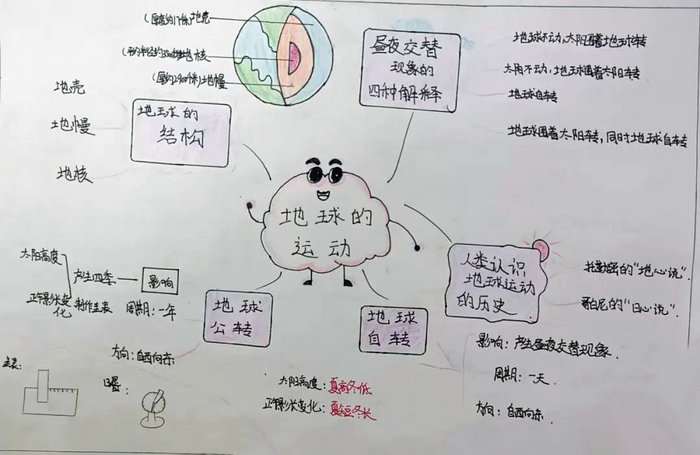 地壳
地幔
地核
地球的
结构
昼夜交替
现象的
四种解释
地球不动,太阳围着地球转
太阳不动,地球围着太阳转
地球自转
地球围着太阳转,同时地球自转
地球的
运动
人类认识
地球运动
的历史
托勒密的“地心说”
哥白尼的“日心说”
地球
公转
太阳高度
正午影长变
化
产生四季
影响
制作圭表
周期:一年
方向:自西向东
圭表:
日晷:
地球
自转
影响:产生昼夜交替现象.
周期:一天.
方向:自西向东.
太阳高度:夏高冬低
正午影长变化:夏短冬长